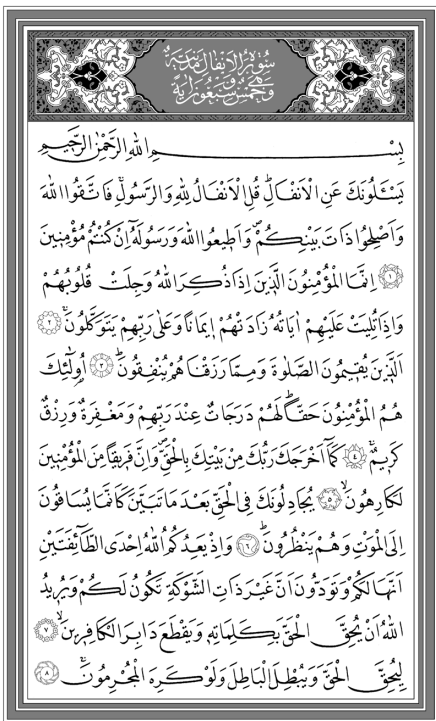 سُورَةُ الْاَنْفَالِ مَدَنِيَّةٌ
وَهِيَ خَمْسٌ وَسَبْعُونَ اٰيَةً
بِسْمِ اللّٰهِ الرَّحْمٰنِ الرَّحِيمِ
يَسْـَٔلُونَكَ عَنِ الْاَنْفَالِۜ قُلِ الْاَنْفَالُ لِلّٰهِ وَالرَّسُولِۚ فَاتَّقُوا اللّٰهَ
وَاَصْلِحُوا ذَاتَ بَيْنِكُمْۖ وَاَطِيعُوا اللّٰهَ وَرَسُولَهُٓ اِنْ كُنْتُمْ مُؤْمِنِينَ
﴿١﴾ اِنَّمَا الْمُؤْمِنُونَ الَّذِينَ اِذَا ذُكِرَ اللّٰهُ وَجِلَتْ قُلُوبُهُمْ
وَاِذَا تُلِيَتْ عَلَيْهِمْ اٰيَاتُهُ زَادَتْهُمْ ا۪يمَاناً وَعَلٰى رَبِّهِمْ يَتَوَكَّلُونَۚ ﴿٢﴾
اَلَّذِينَ يُقِيمُونَ الصَّلٰوةَ وَمِمَّا رَزَقْنَاهُمْ يُنْفِقُونَۜ ﴿٣﴾ اُو۬لٰٓئِكَ
هُمُ الْمُؤْمِنُونَ حَقاًّۜ لَهُمْ دَرَجَاتٌ عِنْدَ رَبِّهِمْ وَمَغْفِرَةٌ وَرِزْقٌ
كَرِيمٌۚ ﴿٤﴾ كَمَٓا اَخْرَجَكَ رَبُّكَ مِنْ بَيْتِكَ بِالْحَقِّۖ وَاِنَّ فَرِيقاً مِنَ الْمُؤْمِنِينَ
لَكَارِهُونَۙ ﴿٥﴾ يُجَادِلُونَكَ فِي الْحَقِّ بَعْدَ مَا تَبَيَّنَ كَاَنَّمَا يُسَاقُونَ
اِلَى الْمَوْتِ وَهُمْ يَنْظُرُونَۜ ﴿٦﴾ وَاِذْ يَعِدُكُمُ اللّٰهُ اِحْدَى الطَّٓائِفَتَيْنِ
اَنَّهَا لَكُمْ وَتَوَدُّونَ اَنَّ غَيْرَ ذَاتِ الشَّوْكَةِ تَكُونُ لَكُمْ وَيُرِيدُ
اللّٰهُ اَنْ يُحِقَّ الْحَقَّ بِكَلِمَاتِهِ وَيَقْطَعَ دَابِرَ الْكَافِرِينَۙ ﴿٧﴾
لِيُحِقَّ الْحَقَّ وَيُبْطِلَ الْبَاطِلَ وَلَوْ كَرِهَ الْمُجْرِمُونَۚ ﴿٨﴾